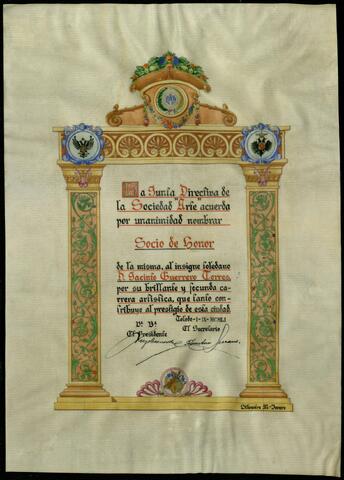 La Junta Directiva de
la Sociedad "Arte" acuerda
por unanimidad nombrar
Socio de Honor
de la misma, al insigne toledano
D. Jacinto Guerrero Torres,
por su brillante y fecunda ca-
rrera artística, que tanto con-
tribuye al prestigio de esta ciudad.
Toledo-1-IX-MCMLI
Vº Bº
El Presidente
El Secretario